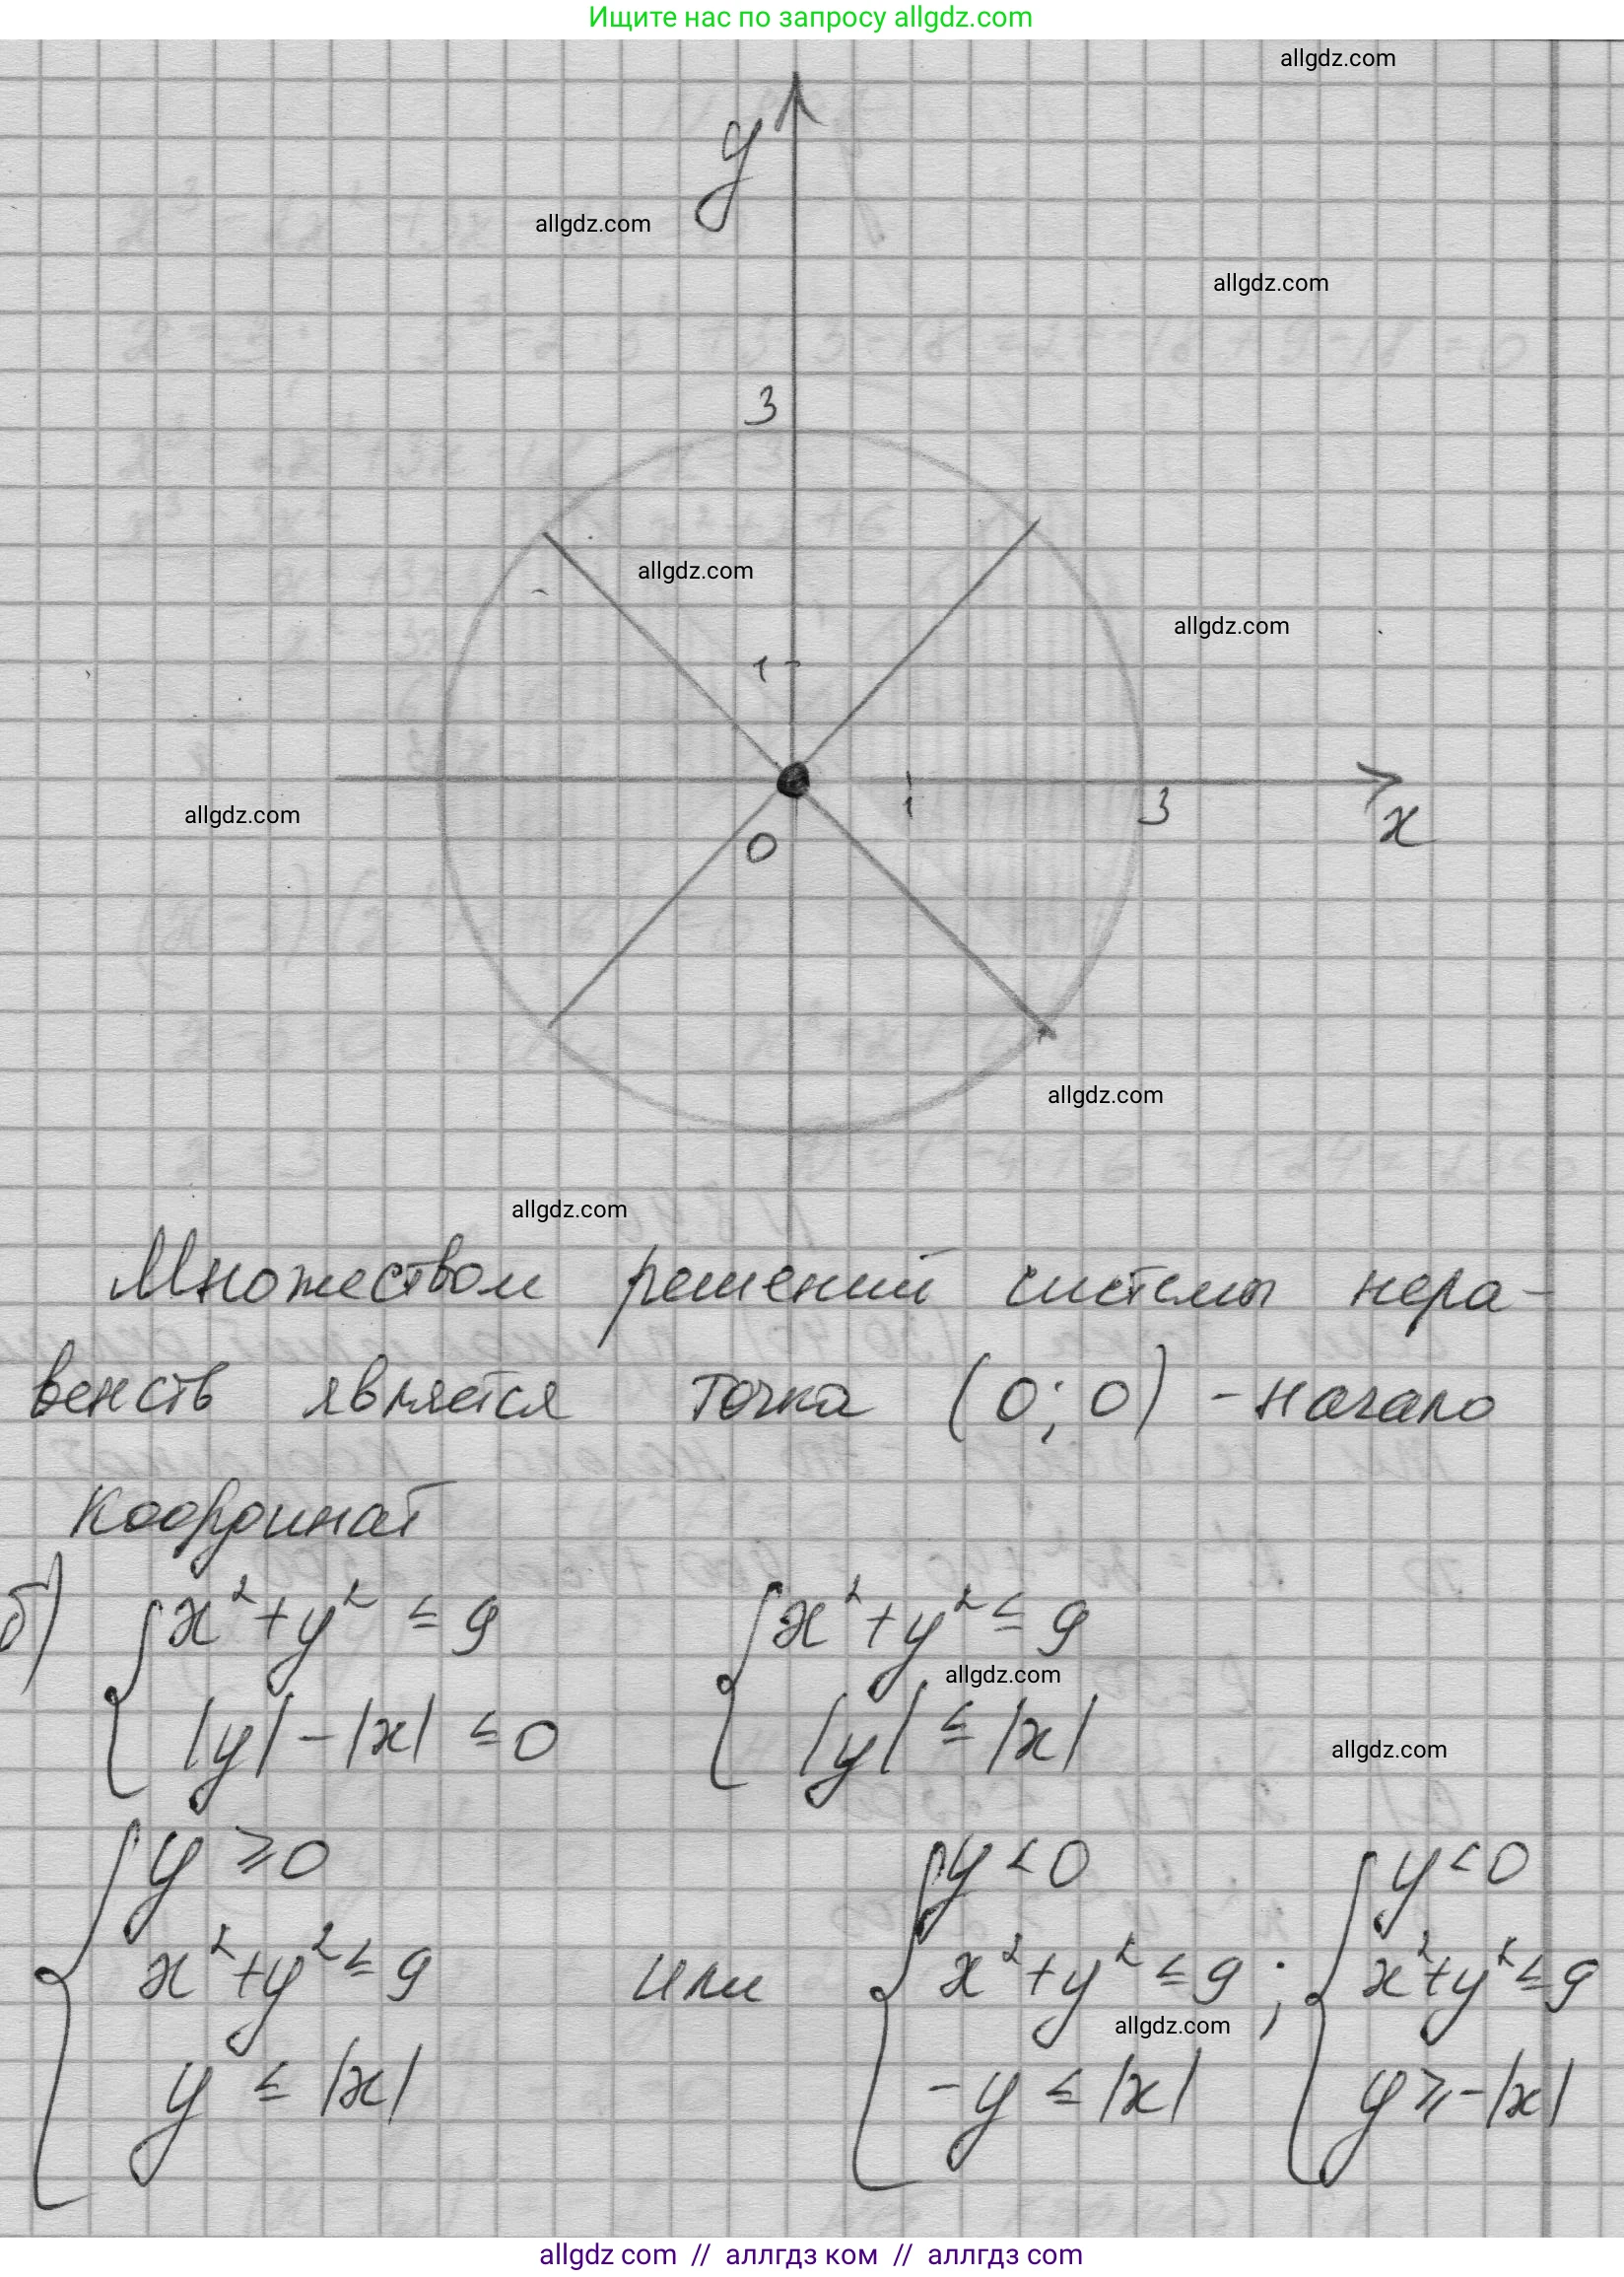 Ищите нас по запросу allgdz.com
allgdz.com
y
allgdz.com
allgdz.com
3
allgdz.com
allgdz.com
1
allgdz.com
0
1
3
x
allgdz.com
allgdz.com
Множеством решений системы нера-
венств является точка (0; 0) - начало
координат
б) { x² + y² ≤ 9 { x² + y² ≤ 9
allgdz.com
|y| - |x| ≤ 0 |y| ≤ |x|
allgdz.com
{ y ⩾ 0 { y < 0 { y < 0
x² + y² ≤ 9 или x² + y² ≤ 9 ; x² + y² ≤ 9
allgdz.com
y ≤ |x| -y ≤ |x| y ⩾ -|x|
allgdz com // аллгдз ком // аллгдз com